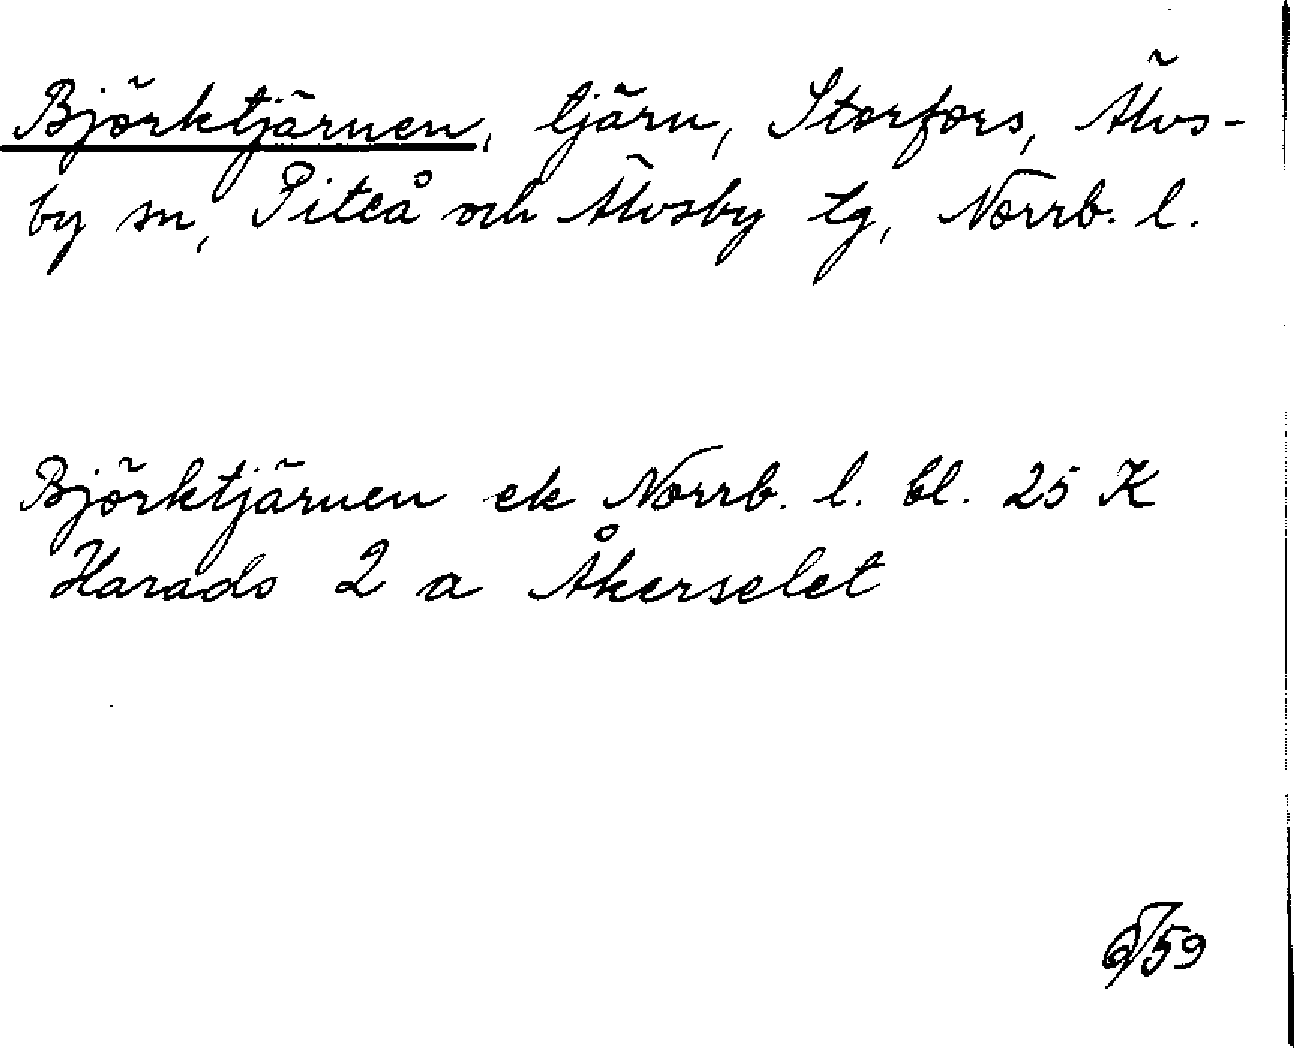 Björktjärnen, tjärn, Storfors, Älvs-
by sn, Piteå och Älvsby tg, Norrb. l.
Björktjärnen ek Norrb. l. bl. 25 K
Harads 2 a Åkerselet